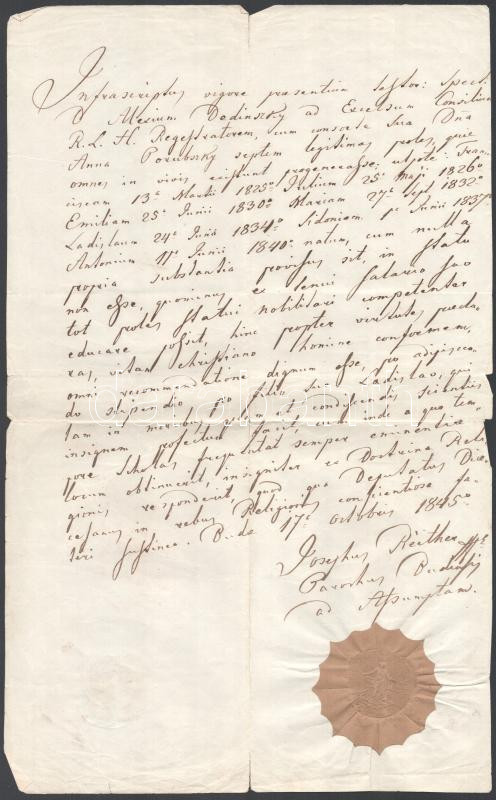 Infrascriptus vigore praesentium testor: Spect:
D. Alexium Dodinszky ad Excelsum Consilium
R. L. H. Registratorem, cum consorte sua Dna
Anna Porubszky septem legitimas proles, quae
omnes in vivis existunt progenerasse, utpote: Fran-
ciscam 13a Martii 1825o Julium 25a Maji 1826o
Emiliam 25a Junii 1830o Mariam 27a Sept 1832o
Ladislaum 24a Junii 1834o Sidoniam 1a Junii 1837o
Antonium 11a Junii 1840o natum, cum nulla
propria substantia provisus sit, in statu
non esse, quominus ex tenui salario suo
tot proles statui nobilitari competenter
educare possit, hinc propter virtutes praecla-
ras, vitam christiano homine conformem,
omni recommendatione dignum esse, pro adipiscen-
do stipendio pro filio suo Ladislao, qui
tam in moribus, quam et scientiis
insignem profectum facit, cum inde a quo tem-
pore Scholas frequentat semper eminentiae
locum obtinuerit, insigniter ex Doctrina Reli-
gionis responderit, quod qua Deputatus Dioe-
cesanus in rebus Religionis conscientiose fa-
teri sustineo. Budae 17a Octobris 1845o
Josephus Reither
Parochus Budensis
ad Assumptam.
darabanth